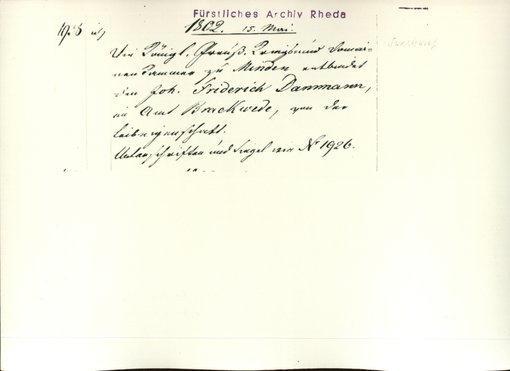 Fürstliches Archiv Rheda
1802. 15. Mai.
Die Königl. Preuß. Kriegs und Domai-
nen Cammer zu Minden entbindet
den Joh. Friderich Dammann,
im Amt Brackwede, von der
Leibeigenschaft.
Unterschriften und Siegel wie № 1926.